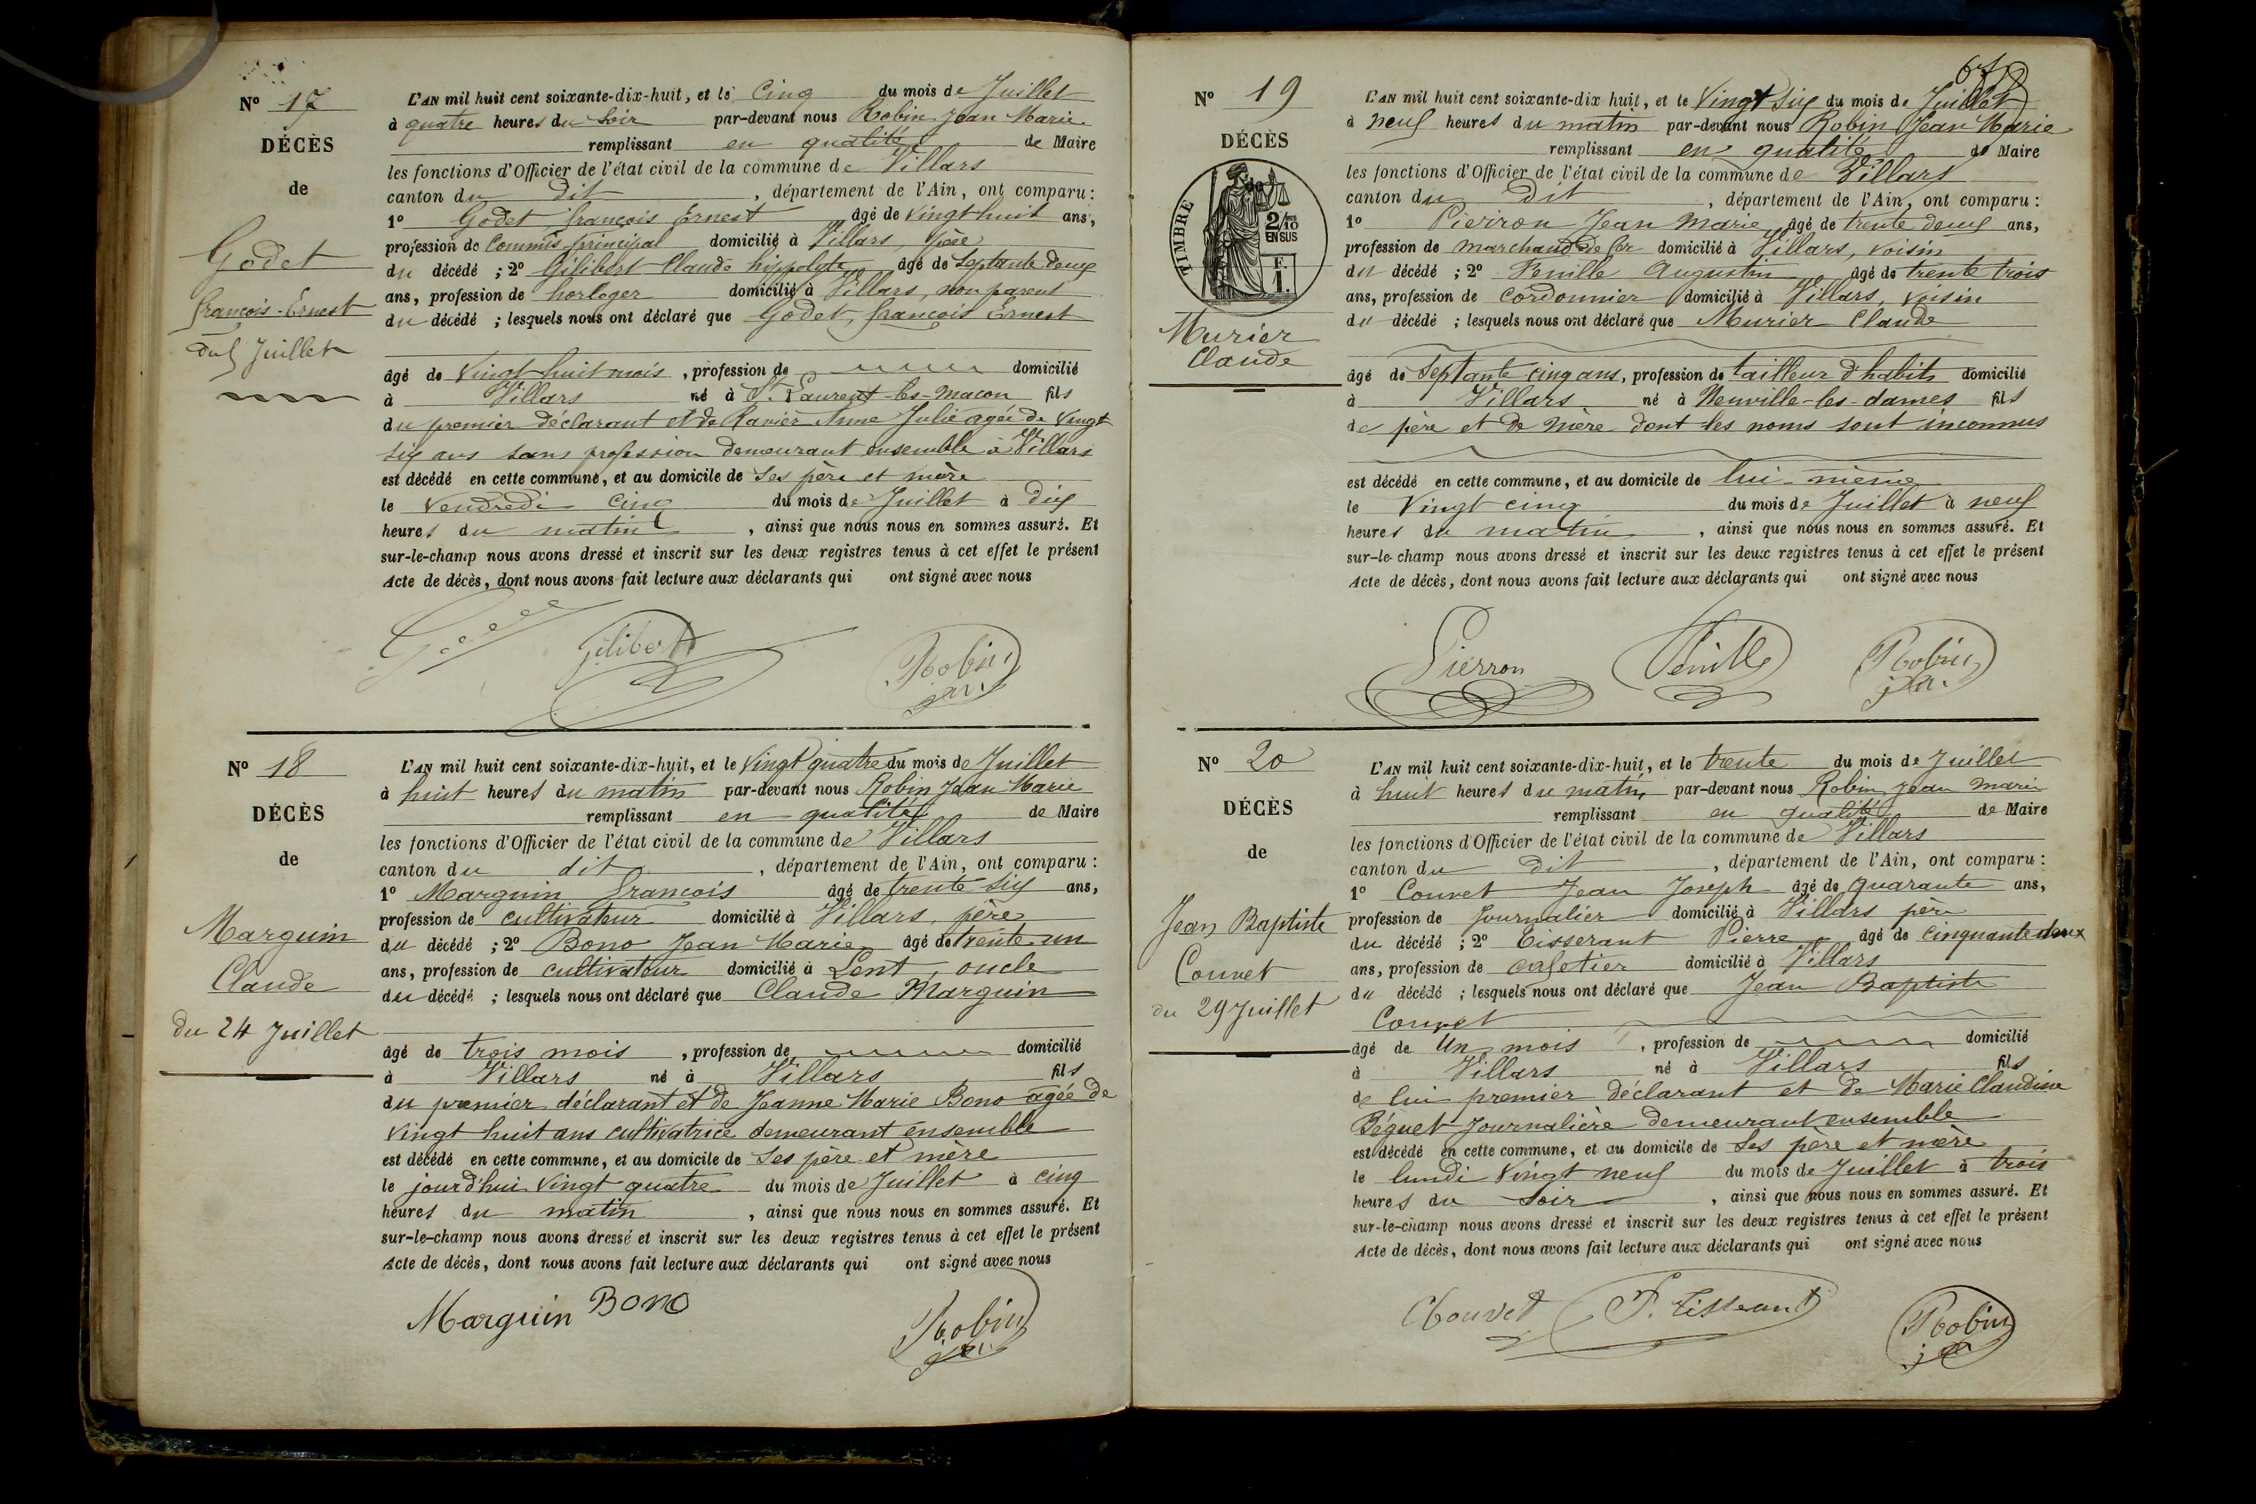 N° 17
DÉCÈS
de
Godet
françois-Ernest
du 5 Juillet
L'AN mil huit cent soixante-dix-huit, et le Cinq du mois de Juillet
à quatre heures du Soir par-devant nous Robin Jean Marie
remplissant en qualité de Maire
les fonctions d'Officier de l'état civil de la commune de Villars
canton du dit, département de l'Ain, ont comparu :
1° Godet françois Ernest âgé de Vingt huit ans,
profession de Commis principal domicilié à Villars, père
du décédé ; 2° Gilibert Claude hippolyte âgé de Septante deux
ans, profession de horloger domicilié à Villars, non parent
du décédé ; lesquels nous ont déclaré que Godet, françois Ernest
âgé de Vingt huit mois, profession de domicilié
à Villars né à St. Laurent-les-Macon fils
du premier déclarant et de Ravier Anne Julie agée de Vingt
six ans sans profession demeurant ensemble à Villars
est décédé en cette commune, et au domicile de Ses père et mère
le Vendredi Cinq du mois de Juillet à dix
heures du matin, ainsi que nous nous en sommes assuré. Et
sur-le-champ nous avons dressé et inscrit sur les deux registres tenus à cet effet le présent
Acte de décès, dont nous avons fait lecture aux déclarants qui ont signé avec nous
Gilibert Robin
N° 18
DÉCÈS
de
Marguin
Claude
du 24 Juillet
L'AN mil huit cent soixante-dix-huit, et le Vingt quatre du mois de Juillet
à huit heures du matin par-devant nous Robin Jean Marie
remplissant en qualité de Maire
les fonctions d'Officier de l'état civil de la commune de Villars
canton du dit, département de l'Ain, ont comparu :
1° Marguin françois âgé de trente Six ans,
profession de cultivateur domicilié à Villars, père
du décédé ; 2° Bono Jean Marie âgé de trente un
ans, profession de cultivateur domicilié à Lent, oncle
du décédé ; lesquels nous ont déclaré que Claude Marguin
âgé de trois mois, profession de domicilié
à Villars né à Villars fils
du premier déclarant et de Jeanne Marie Bono agée de
Vingt huit ans cultivatrice demeurant ensemble
est décédé en cette commune, et au domicile de Ses père et mère
le jourd'hui Vingt quatre du mois de Juillet à cinq
heures du matin, ainsi que nous nous en sommes assuré. Et
sur-le-champ nous avons dressé et inscrit sur les deux registres tenus à cet effet le présent
Acte de décès, dont nous avons fait lecture aux déclarants qui ont signé avec nous
Marguin Bono Robin
N° 19
DÉCÈS
TIMBRE
2/10
EN SUS
F.
1.
Murier
Claude
L'AN mil huit cent soixante-dix huit, et le Vingt Six du mois de Juillet
à neuf heures du matin par-devant nous Robin Jean Marie
remplissant en qualité de Maire
les fonctions d'Officier de l'état civil de la commune de Villars
canton du Dit, département de l'Ain, ont comparu :
1° Pierron Jean Marie âgé de trente deux ans,
profession de marchand de fer domicilié à Villars, voisin
du décédé ; 2° Penille Augustin âgé de trente trois
ans, profession de cordonnier domicilié à Villars, voisin
du décédé ; lesquels nous ont déclaré que Murier Claude
âgé de Septante cinq ans, profession de tailleur d'habits domicilié
à Villars né à Neuville-les-dames fils
de père et de mère dont les noms sont inconnus
est décédé en cette commune, et au domicile de lui-même
le Vingt cinq du mois de Juillet à neuf
heures du matin, ainsi que nous nous en sommes assuré. Et
sur-le-champ nous avons dressé et inscrit sur les deux registres tenus à cet effet le présent
Acte de décès, dont nous avons fait lecture aux déclarants qui ont signé avec nous
Pierron Penille Robin
N° 20
DÉCÈS
de
Jean Baptiste
Couvet
du 29 Juillet
L'AN mil huit cent soixante-dix-huit, et le trente du mois de Juillet
à huit heures du matin par-devant nous Robin Jean Marie
remplissant en qualité de Maire
les fonctions d'Officier de l'état civil de la commune de Villars
canton du dit, département de l'Ain, ont comparu :
1° Couvet Jean Joseph âgé de quarante ans,
profession de Journalier domicilié à Villars père
du décédé ; 2° Tisserant Pierre âgé de cinquante deux
ans, profession de cafetier domicilié à Villars
du décédé ; lesquels nous ont déclaré que Jean Baptiste
Couvet
âgé de Un mois, profession de domicilié
à Villars né à Villars fils
de lui premier déclarant et de Marie Claudine
Béguet Journalière demeurant ensemble
est décédé en cette commune, et au domicile de Ses père et mère
le lundi Vingt neuf du mois de Juillet à trois
heures du Soir, ainsi que nous nous en sommes assuré. Et
sur-le-champ nous avons dressé et inscrit sur les deux registres tenus à cet effet le présent
Acte de décès, dont nous avons fait lecture aux déclarants qui ont signé avec nous
Chouvet P. Tisserant Robin